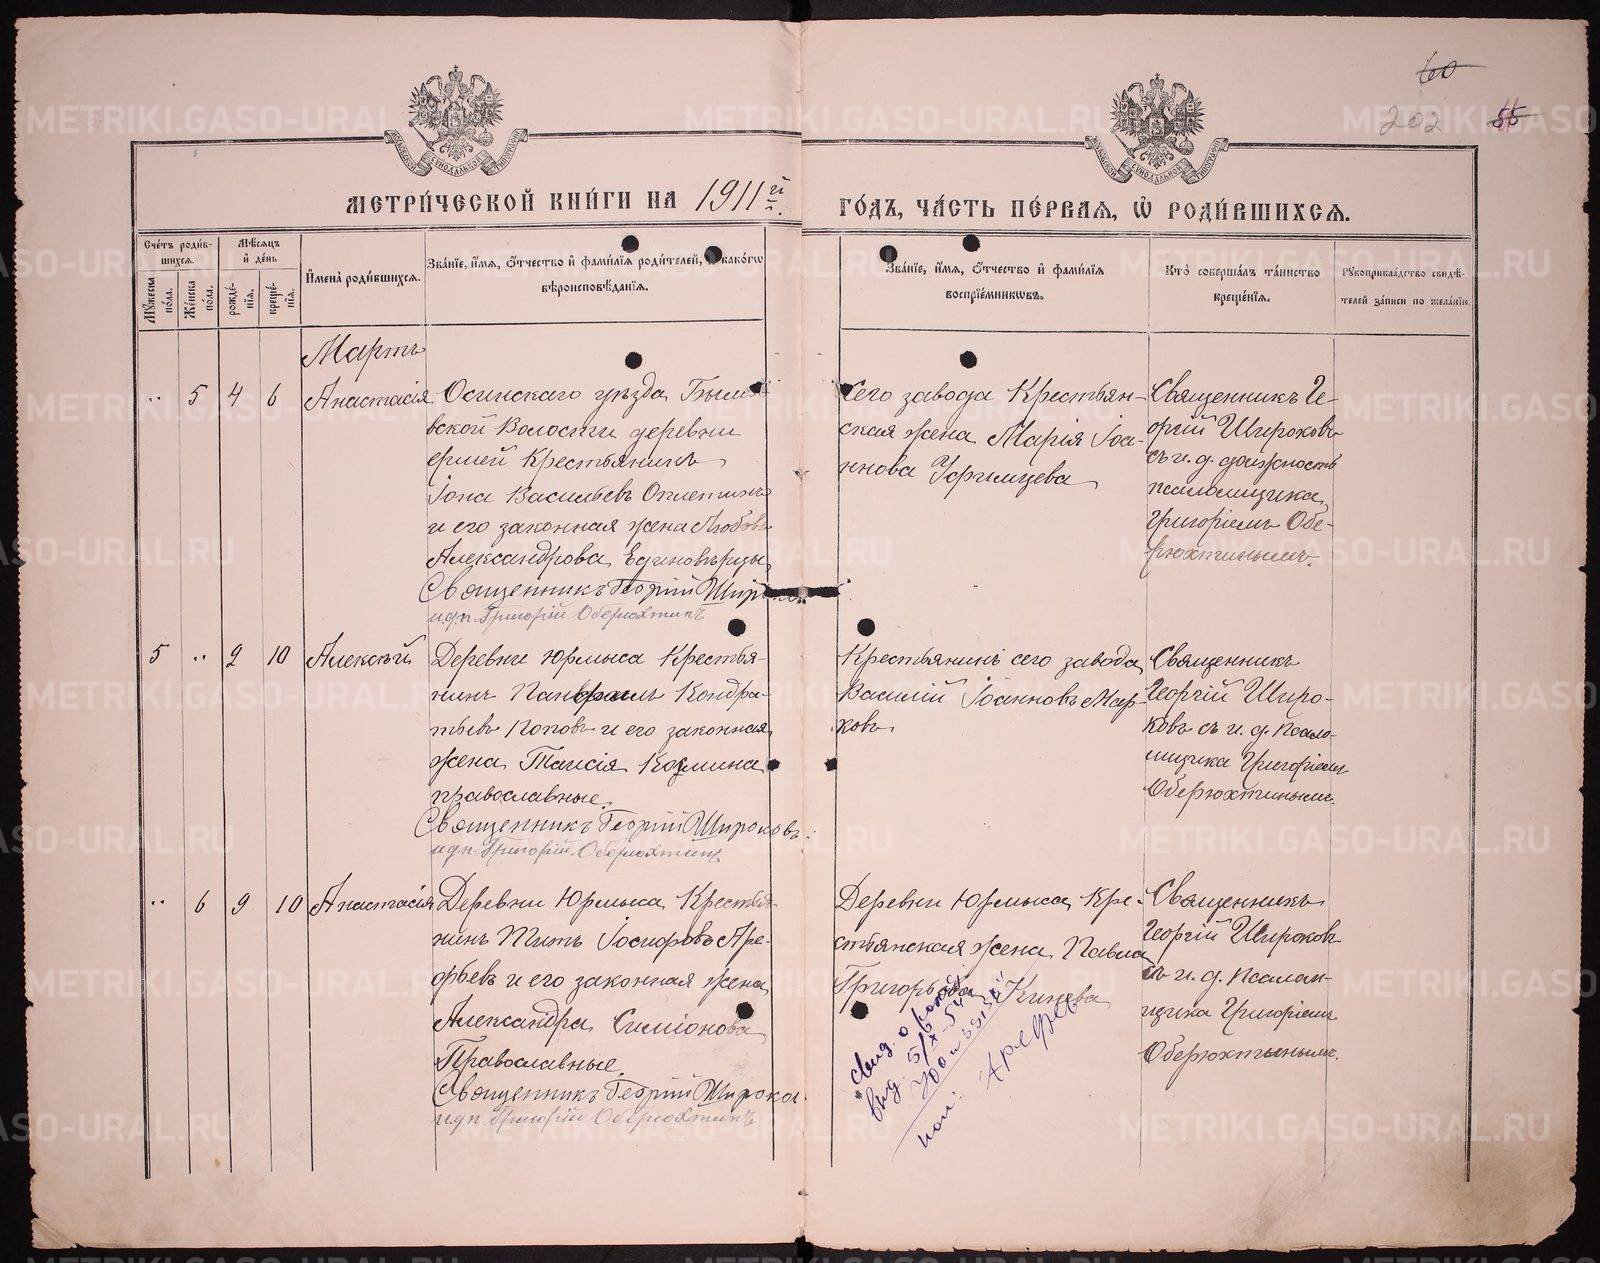 60
202
55
МЕТРИ́ЧЕСКОЙ КНИ́ГИ НА 1911й
ГО́ДЪ, ЧА́СТЬ ПЕ́РВАѦ, Ѡ҆ РОДИ́ВШИХСѦ.
Сче́тъ роди́в-
шихсѧ.
Мꙋ́жеска
по́ла.
Же́нска
по́ла.
Мѣ́сѧцъ
и҆ де́нь
рожде́-
нїѧ.
креще́-
нїѧ.
И҆мена̀ роди́вшихсѧ.
Зва́нїе, и҆́мѧ, ѻ҆́тчество и҆ фами́лїѧ роди́телей, и҆ како́гѡ
вѣроисповѣ́данїѧ.
Зва́нїе, и҆́мѧ, ѻ҆́тчество и҆ фами́лїѧ
воспрїе́мникѡвъ.
Кто̀ соверша́лъ та́инство
креще́нїѧ.
Рꙋкоприкла́дство свидѣ́-
телей за́писи по жела́нїю.
Мартъ
" 5 4 6 Анастасія
Осинскаго уѣзда
вской Волости деревни
ершей Крестьянинъ
Іона Васильевъ Оплетинъ
и его законная жена Любовь
Александрова, Единовѣрцы
Священникъ Георгій Широковъ
и.д.п. Григорій Оберюхтинъ
Сего завода Крестьян-
ская жена Марія Іоа-
ннова Уфимцева
Священникъ Ге-
оргій Широковъ
съ и. д. должность
псаломщика
Григоріемъ Обе-
рюхтинымъ.
5 " 2 10 Алексѣй
Деревни Юрмыса Крестья-
нинъ Панфилъ Кондра-
тьевъ Поповъ и его законная
жена Таисія Козмина
православные.
Священникъ Георгій Широковъ
и.д.п. Григорій Оберюхтинъ
Крестьянинъ сего завода
Василій Іоанновъ Мар-
ковъ
Священникъ
Георгій Широ-
ковъ съ и. д. псало-
мщика Григоріемъ
Оберюхтинымъ.
" 6 9 10 Анастасія
Деревни Юрмыса, Крестья-
нинъ Титъ Іосифовъ Аре-
фьевъ и его законная жена
Александра Симіонова
Православные.
Священникъ Георгій Широковъ
и.д.п. Григорій Оберюхтинъ
Деревни Юрмыса, Кре-
стьянская жена Павла
Григорьева Кинева
Священникъ
Георгій Широковъ
съ и. д. псалом-
щика Григоріемъ
Оберюхтинымъ.
Свид. о рожд.
выд. 5/X-54
Арефьев